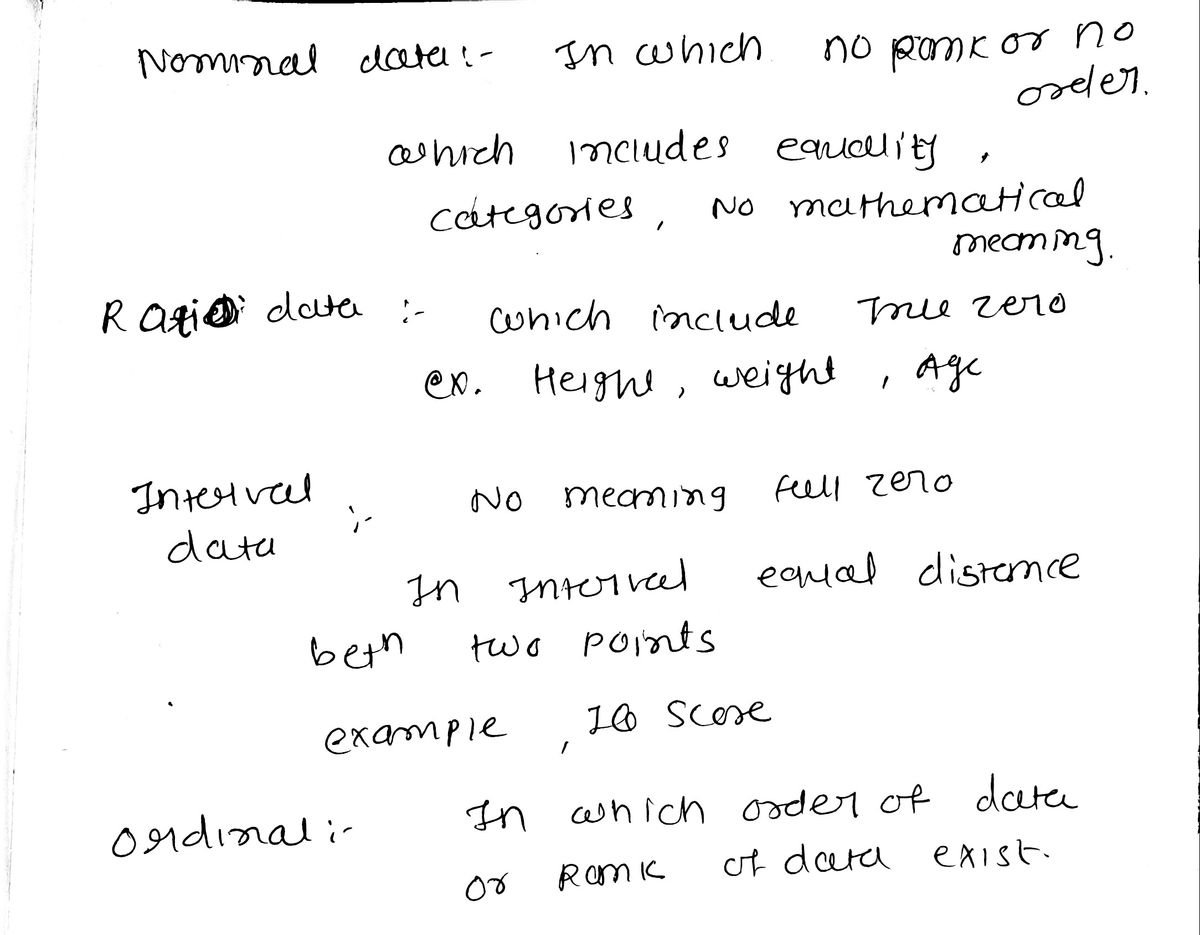 Nominal data :- In which no rank or no
order.
which includes equality ,
categories , No mathematical
meaning.
Ratio data :- which include True zero
ex. Height , weight , Age
Interval :- No meaning full zero
data
In Interval equal distance
betn two points
example , IQ Score
Ordinal :- In which order of data
or Rank of data exist.